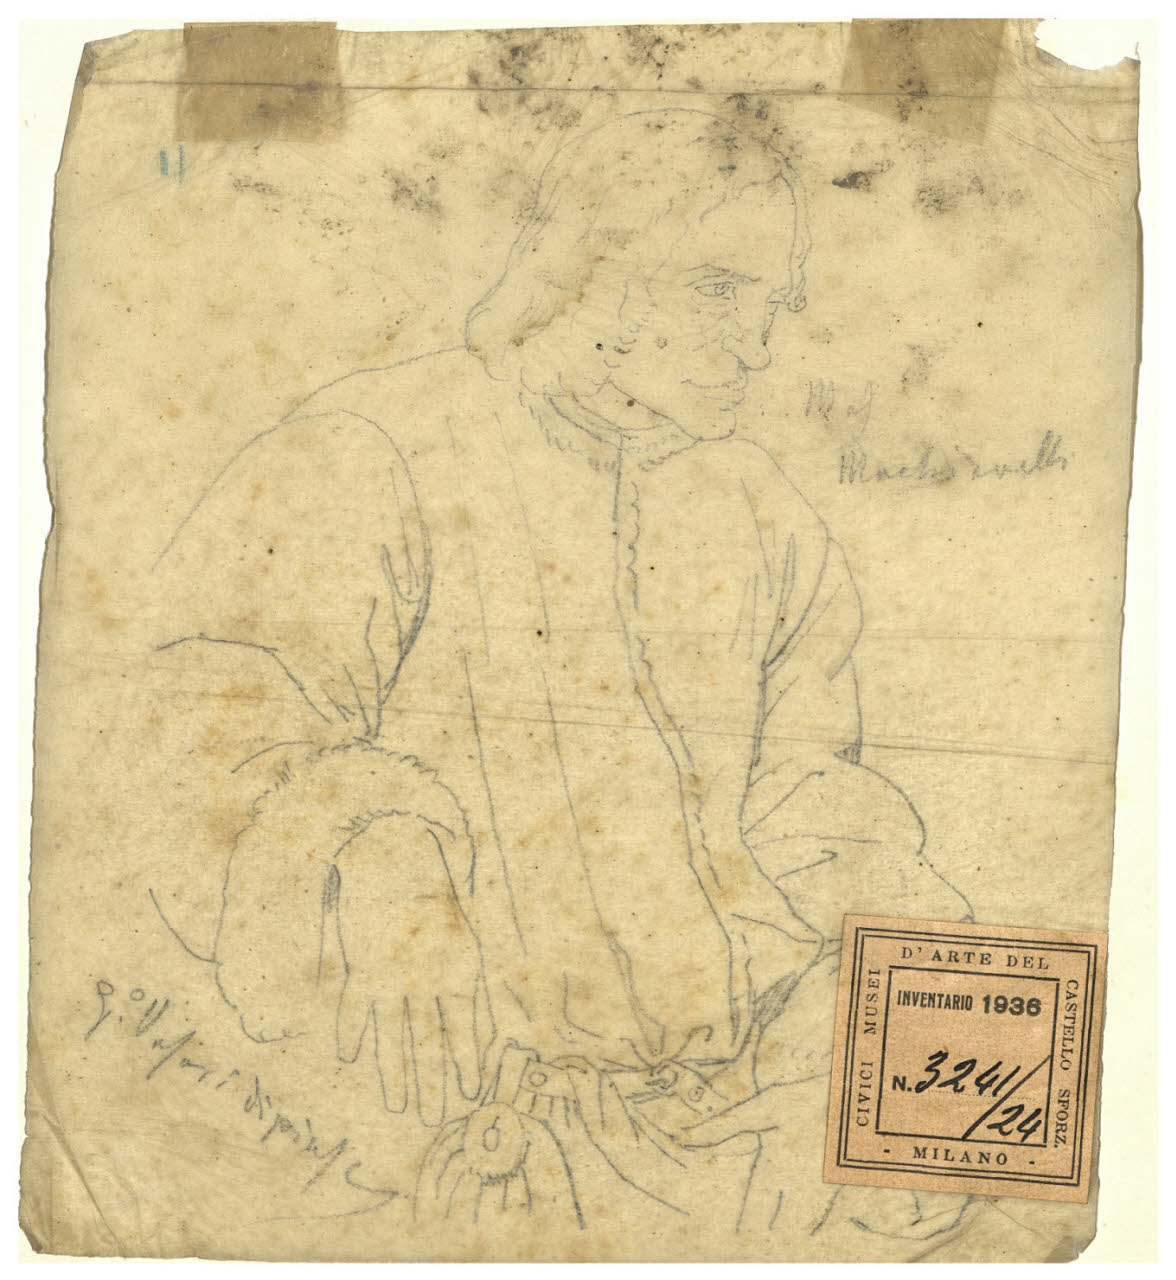 Machiavelli
g.º Vasari dipinse
D'ARTE DEL
CASTELLO SFORZ.
- MILANO -
CIVICI MUSEI
INVENTARIO 1936
N. 3241/24